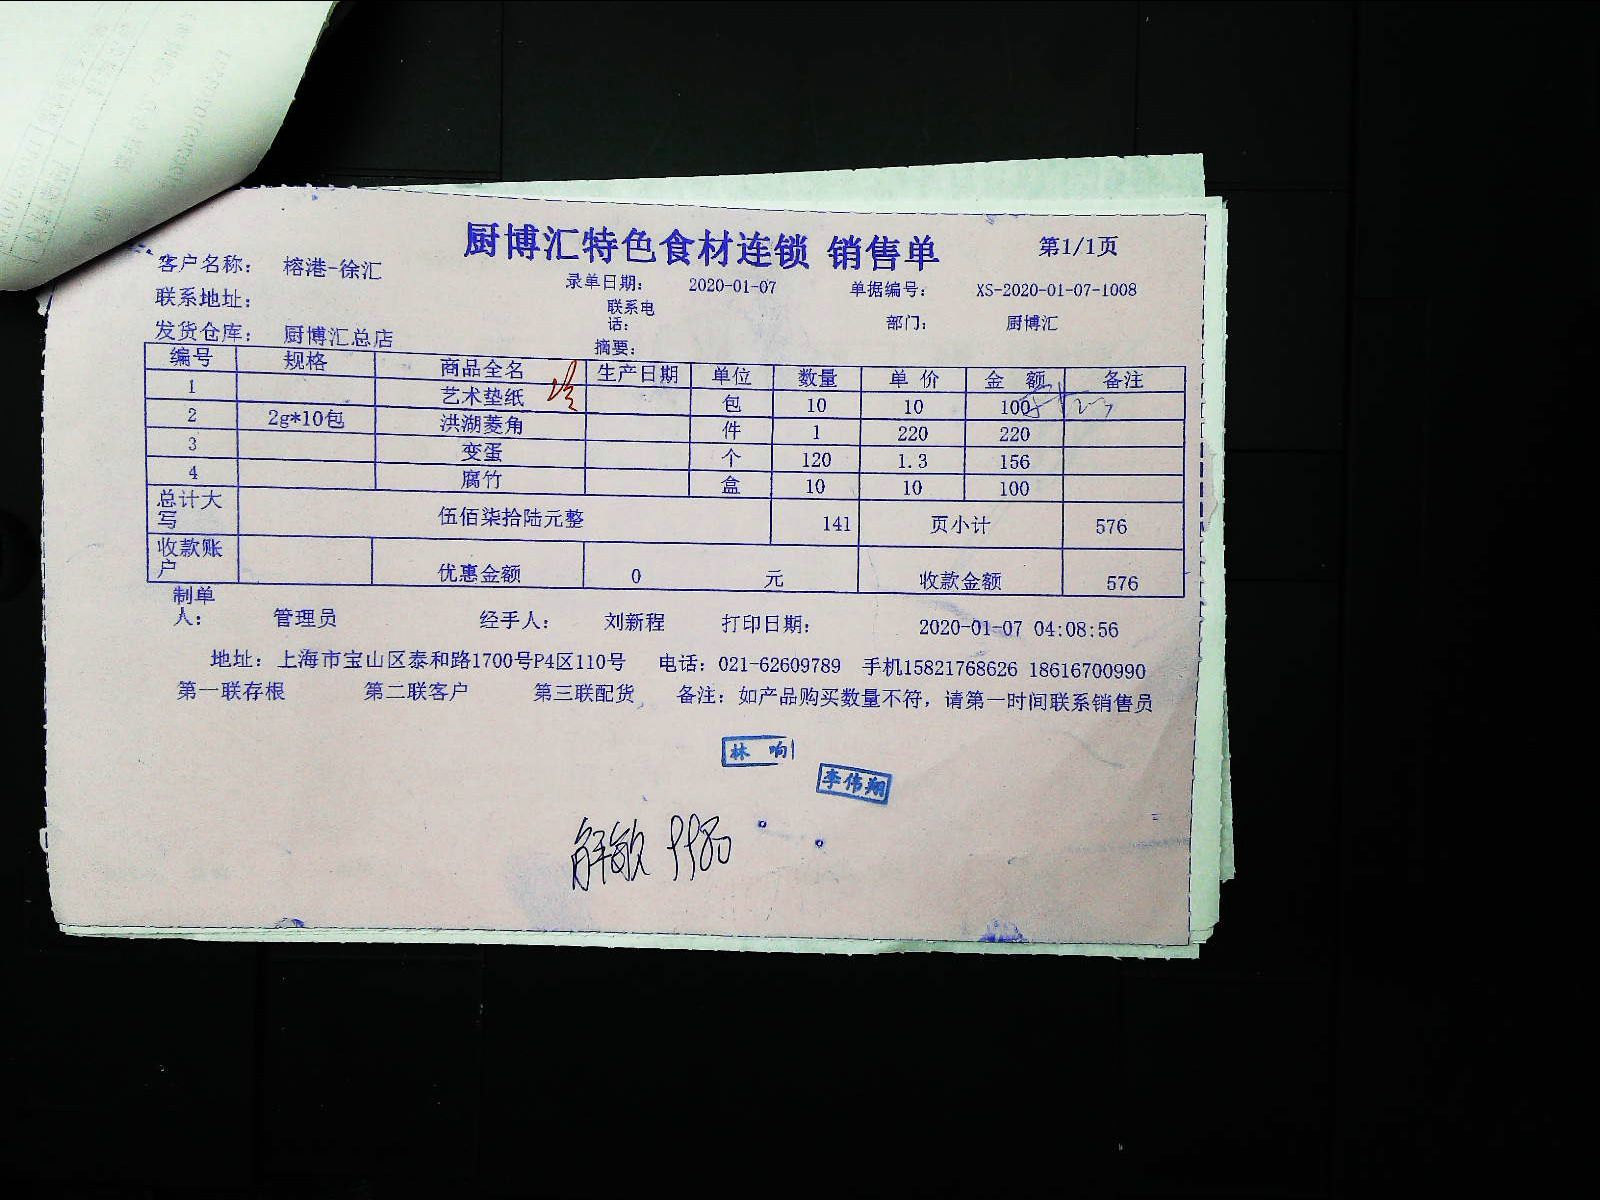 厨博汇特色食材连锁 销售单 第1/1页
客户名称: 榕港-徐汇 录单日期: 2020-01-07 单据编号: XS-2020-01-07-1008
联系地址: 联系电话: 部门: 厨博汇
发货仓库: 厨博汇总店 摘要:
编号 规格 商品全名 生产日期 单位 数量 单价 金额 备注
1 艺术垫纸 包 10 10 100
2 2g*10包 洪湖菱角 件 1 220 220
3 变蛋 个 120 1.3 156
4 腐竹 盒 10 10 100
总计大写 伍佰柒拾陆元整 141 页小计 576
收款账户 优惠金额 0 元 收款金额 576
制单人: 管理员 经手人: 刘新程 打印日期: 2020-01-07 04:08:56
地址: 上海市宝山区泰和路1700号P4区110号 电话: 021-62609789 手机15821768626 18616700990
第一联存根 第二联客户 第三联配货 备注: 如产品购买数量不符, 请第一时间联系销售员
林 响
李伟翔